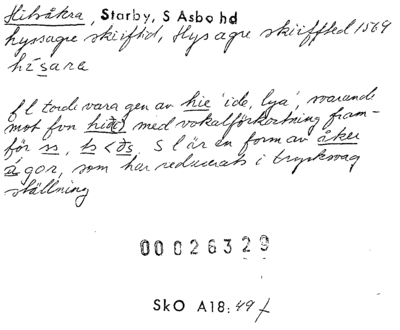 Hitsåkra, Starby, S Asbo hd
hyssagre skiifftid, Hys agre skiiffted 1569
hísara
f l torde vara gen av hie 'ide, lya', svarande
mot fvn híð(i) med vokalförkortning fram-
för ss, ts < ðs. S l är en form av åker
ågor, som har reducerats i trycksvag
ställning
00026329
SkO A18:49f